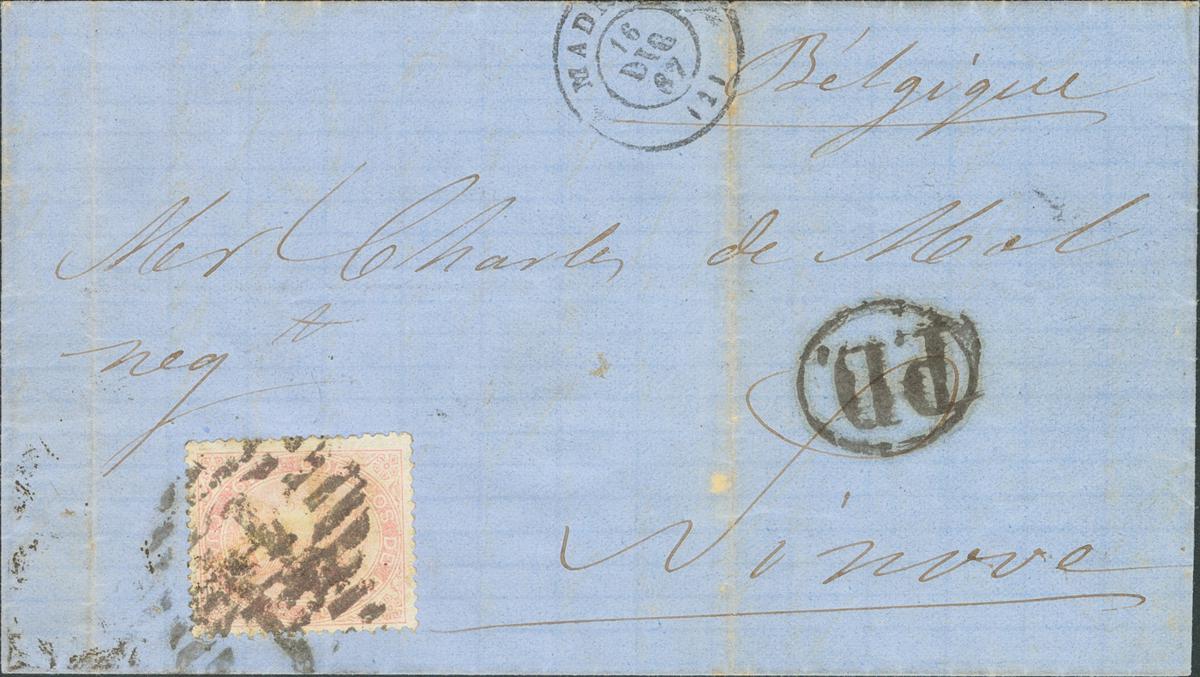 MADR
16
DIC
67
(1)
Bélgique
Mer Charles de Mol
negt
P.D.
OS DE
Ninove